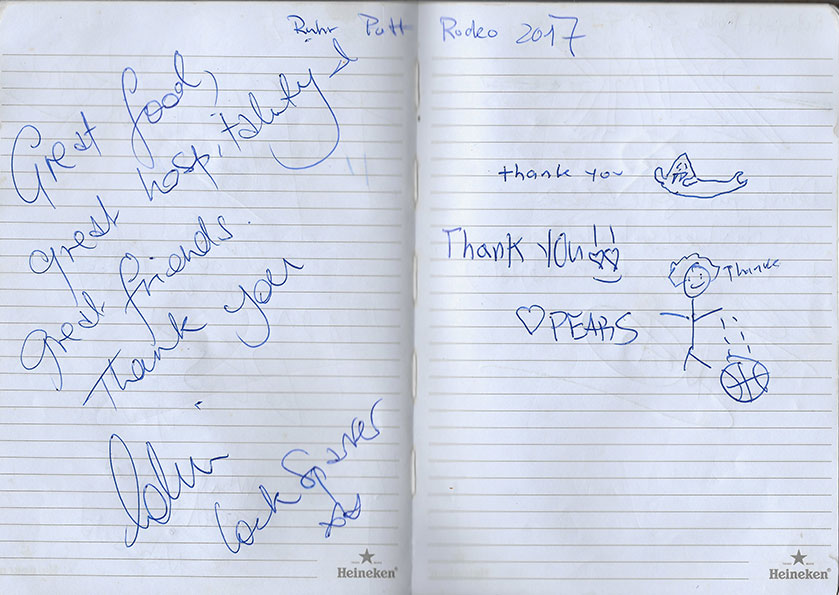 Ruhr Pott Rodeo 2017
Great food,
great hospitality
great friends.
Thank you
Colin
Cock Sparrer
xx
Heineken
thank you
Thank you!!
♡ PEARS
Thanks
Heineken